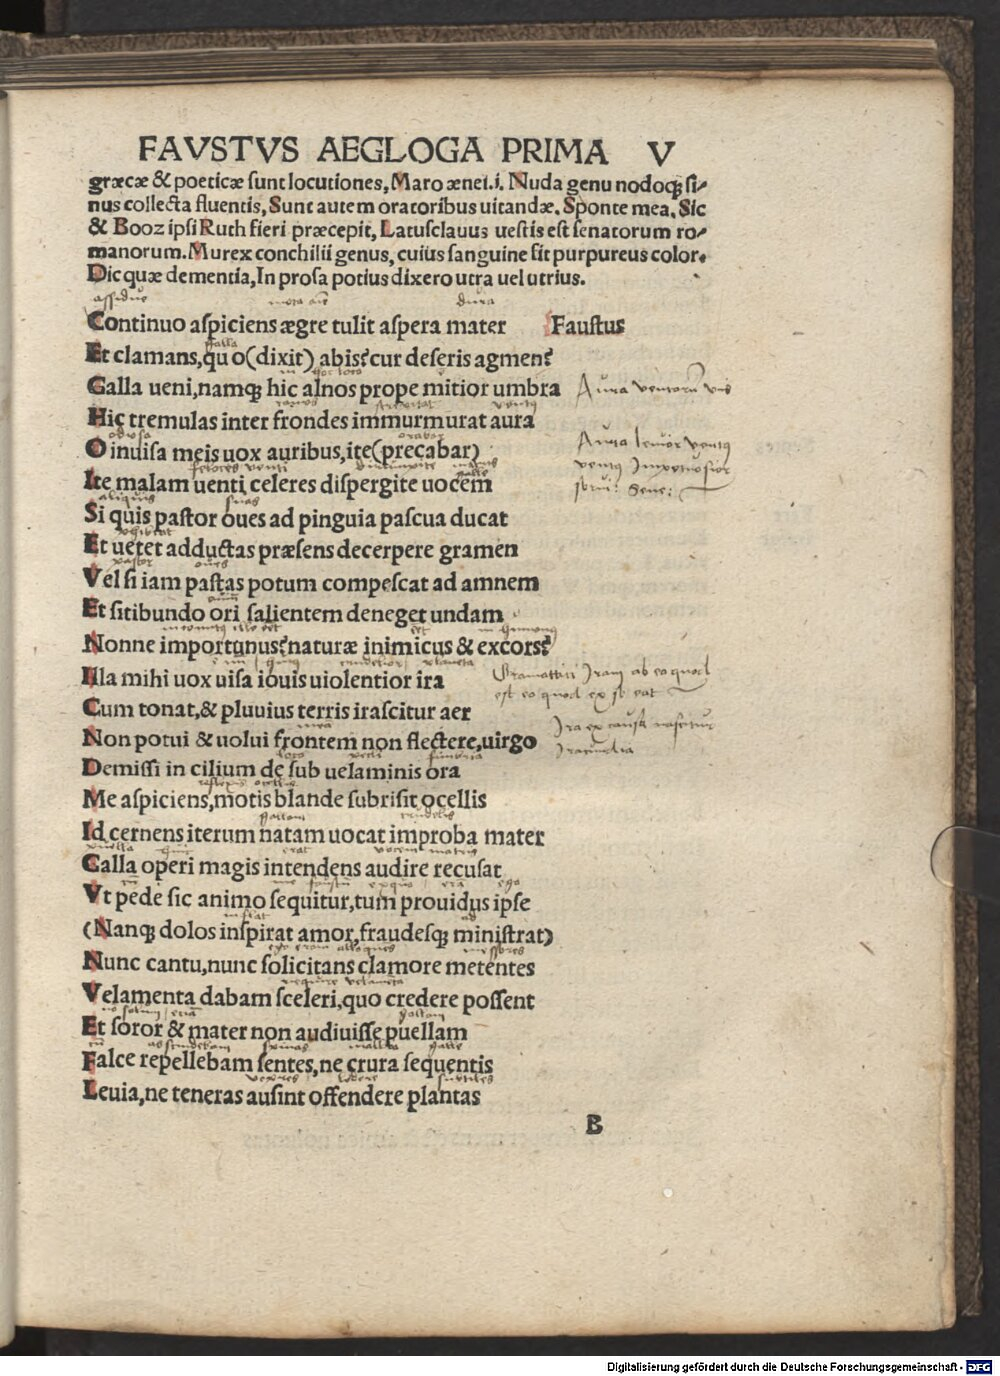 FAVSTVS AEGLOGA PRIMA V
græcæ & poeticæ sunt locutiones, Maro ænei.i. Nuda genu nodoqꝫ si⸗
nus collecta fluentis, Sunt autem oratoribus uitandæ. Sponte mea. Sic
& Booz ipsi Ruth fieri præcepit, Latusclauus uestis est senatorum ro⸗
manorum. Murex conchilii genus, cuius sanguine fit purpureus color.
Dic quæ dementia, In prosa potius dixero utra uel utrius.
assidue dura
Continuo aspiciens ægre tulit aspera mater Faustus
galla
Et clamans, quo (dixit) abis? cur deseris agmen?
Galla ueni, namqꝫ hic alnos prope mitior umbra
Aura ventorum vis
ventus
Hic tremulas inter frondes immurmurat aura
Aura lenior ventus
odiosa orabar
O inuisa meis uox auribus, ite (precabar)
ventus Impetuosior
matris
Ite malam uenti celeres dispergite uocem
aliquis suas
Si quis pastor oues ad pinguia pascua ducat
Et uetet adductas præsens decerpere gramen
pastor oues
Vel si iam pastas potum compescat ad amnem
Et sitibundo ori salientem deneget undam
Nonne importunus? naturæ inimicus & excors?
crudelior planeta
Illa mihi uox uisa iouis uiolentior ira
Iram ab eo quod
est eo quod ex se eat
Cum tonat, & pluuius terris irascitur aer
Ira ex causa nascitur
mea
Non potui & uolui frontem non flectere, uirgo
Iracundia
Demissi in cilium de sub uelaminis ora
Me aspiciens, motis blande subrisit ocellis
gallam crudelis
Id cernens iterum natam uocat improba mater
puella erat vocem matris
Galla operi magis intendens audire recusat
me faustum ego
Vt pede sic animo sequitur, tum prouidus ipse
(Nanqꝫ dolos inspirat amor, fraudesqꝫ ministrat)
messores
Nunc cantu, nunc solicitans clamore metentes
Velamenta dabam sceleri, quo credere possent
gallam
Et soror & mater non audiuisse puellam
spinas galle
Falce repellebam sentes, ne crura sequentis
vepres subtiles
Leuia, ne teneras ausint offendere plantas
B
Digitalisierung gefördert durch die Deutsche Forschungsgemeinschaft - DFG